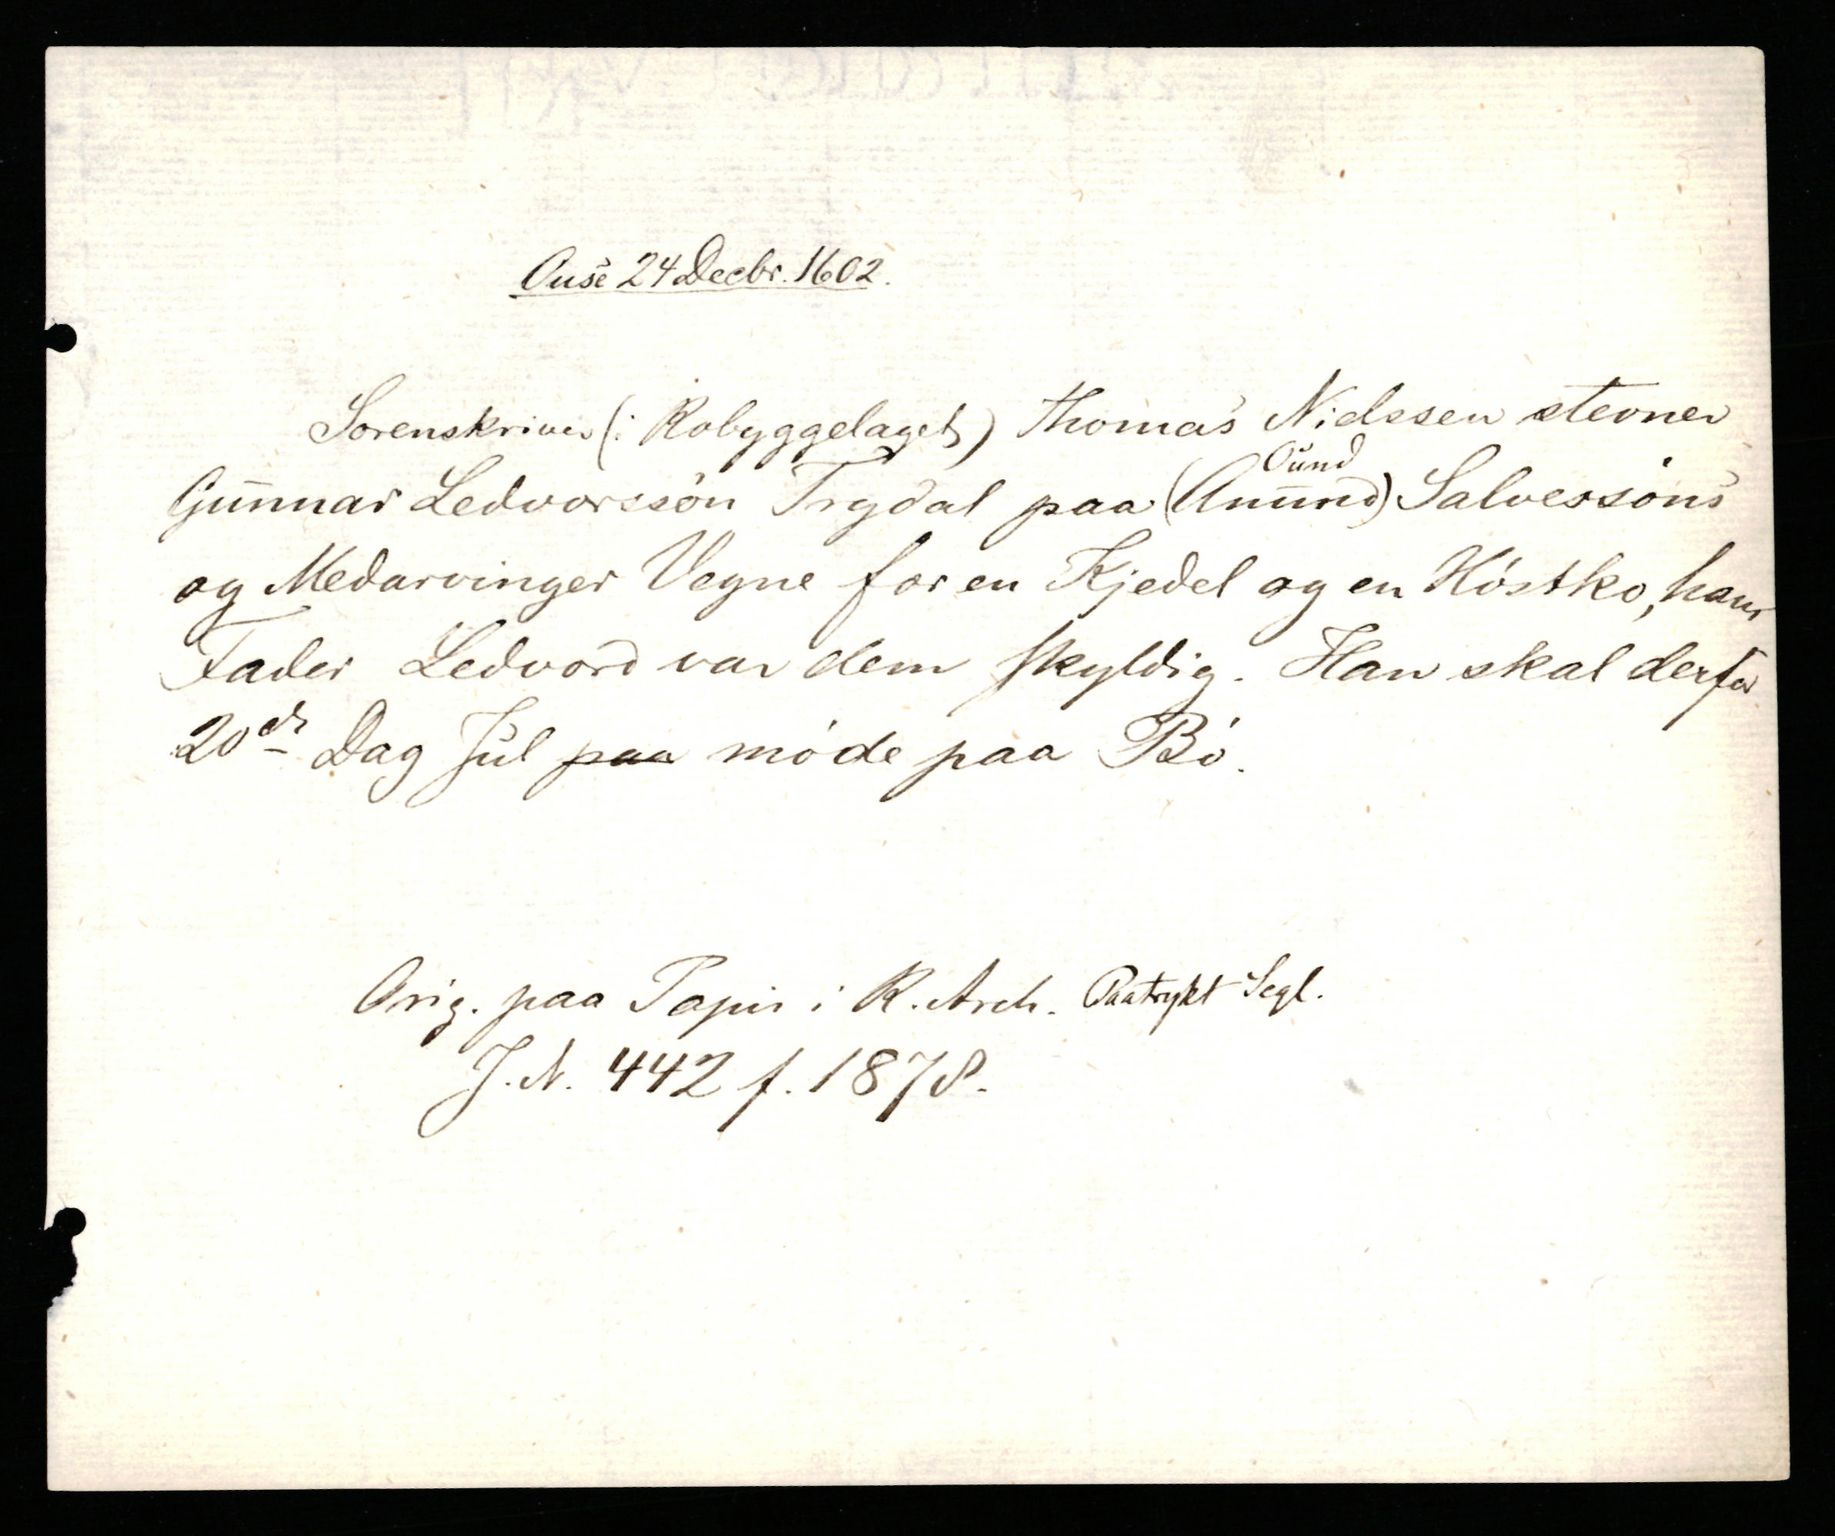 Ouse 24 Decbr. 1602.
Sorenskriver (i Robyggelaget) Thomas Nielssen stevner
Ound
Gunnar Ledvorssön Trydal paa (Amund) Salvessöns
og Medarvinger Vegne for en Kjedel og en Höstko, hans
Fader Ledvord var dem skyldig. Han skal derfor
20de Dag Jul paa möde paa Bö.
Orig. paa Papir i R. Arch. Paatrykt Segl.
J. N. 442 f. 1878.